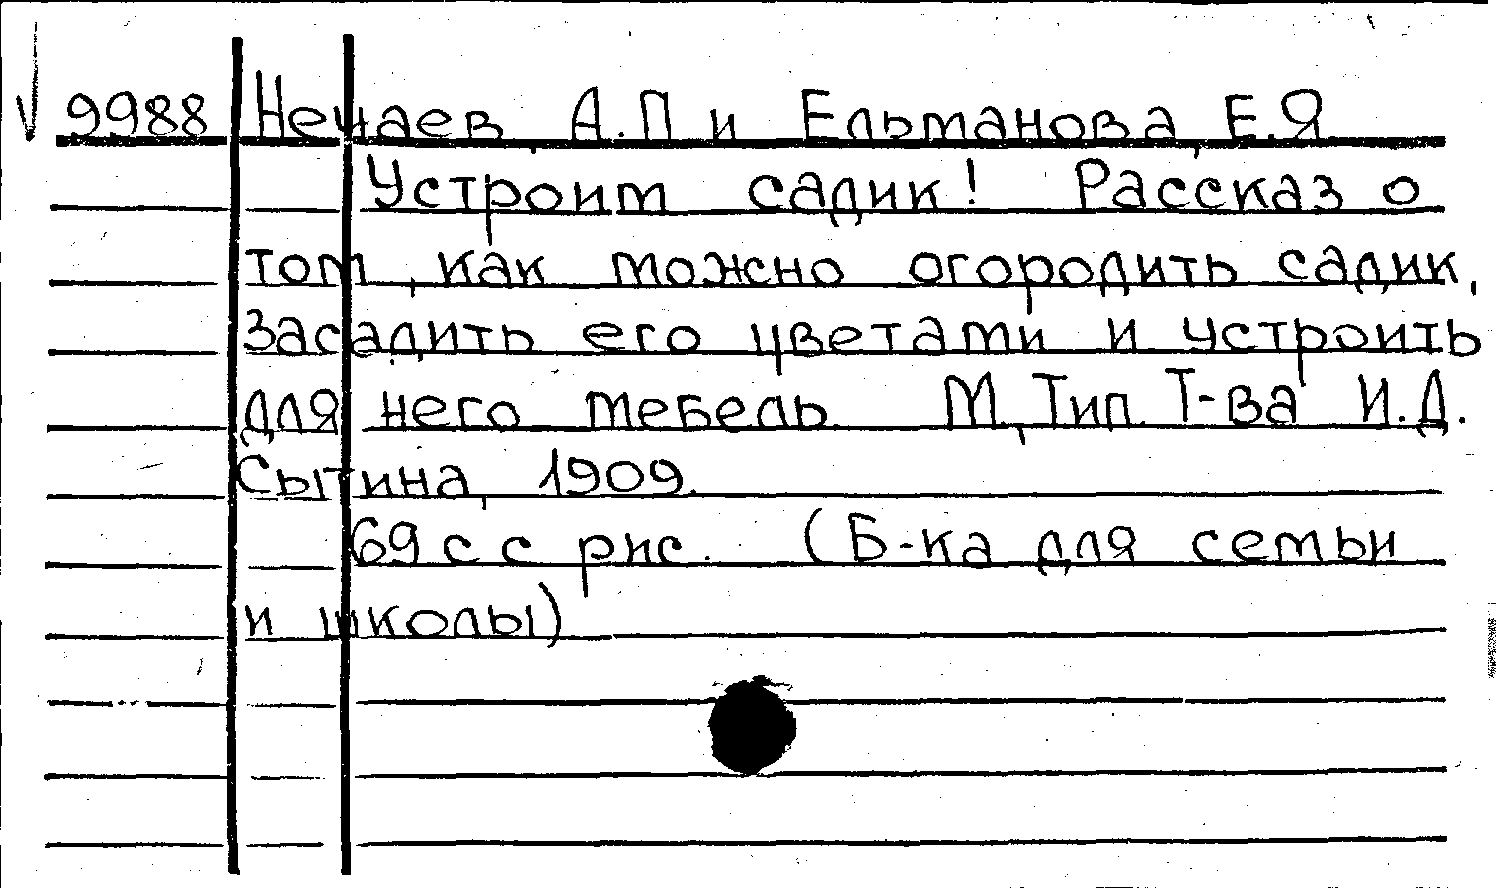 9988 Нечаев, А.П и Ельманова, Е.Я
Устроим садик! Рассказ о
том, как можно огородить садик,
засадить его цветами и устроить
для него мебель. М, Тип. Т-ва И.Д.
Сытина, 1909.
69 с с рис. (Б-ка для семьи
и школы)